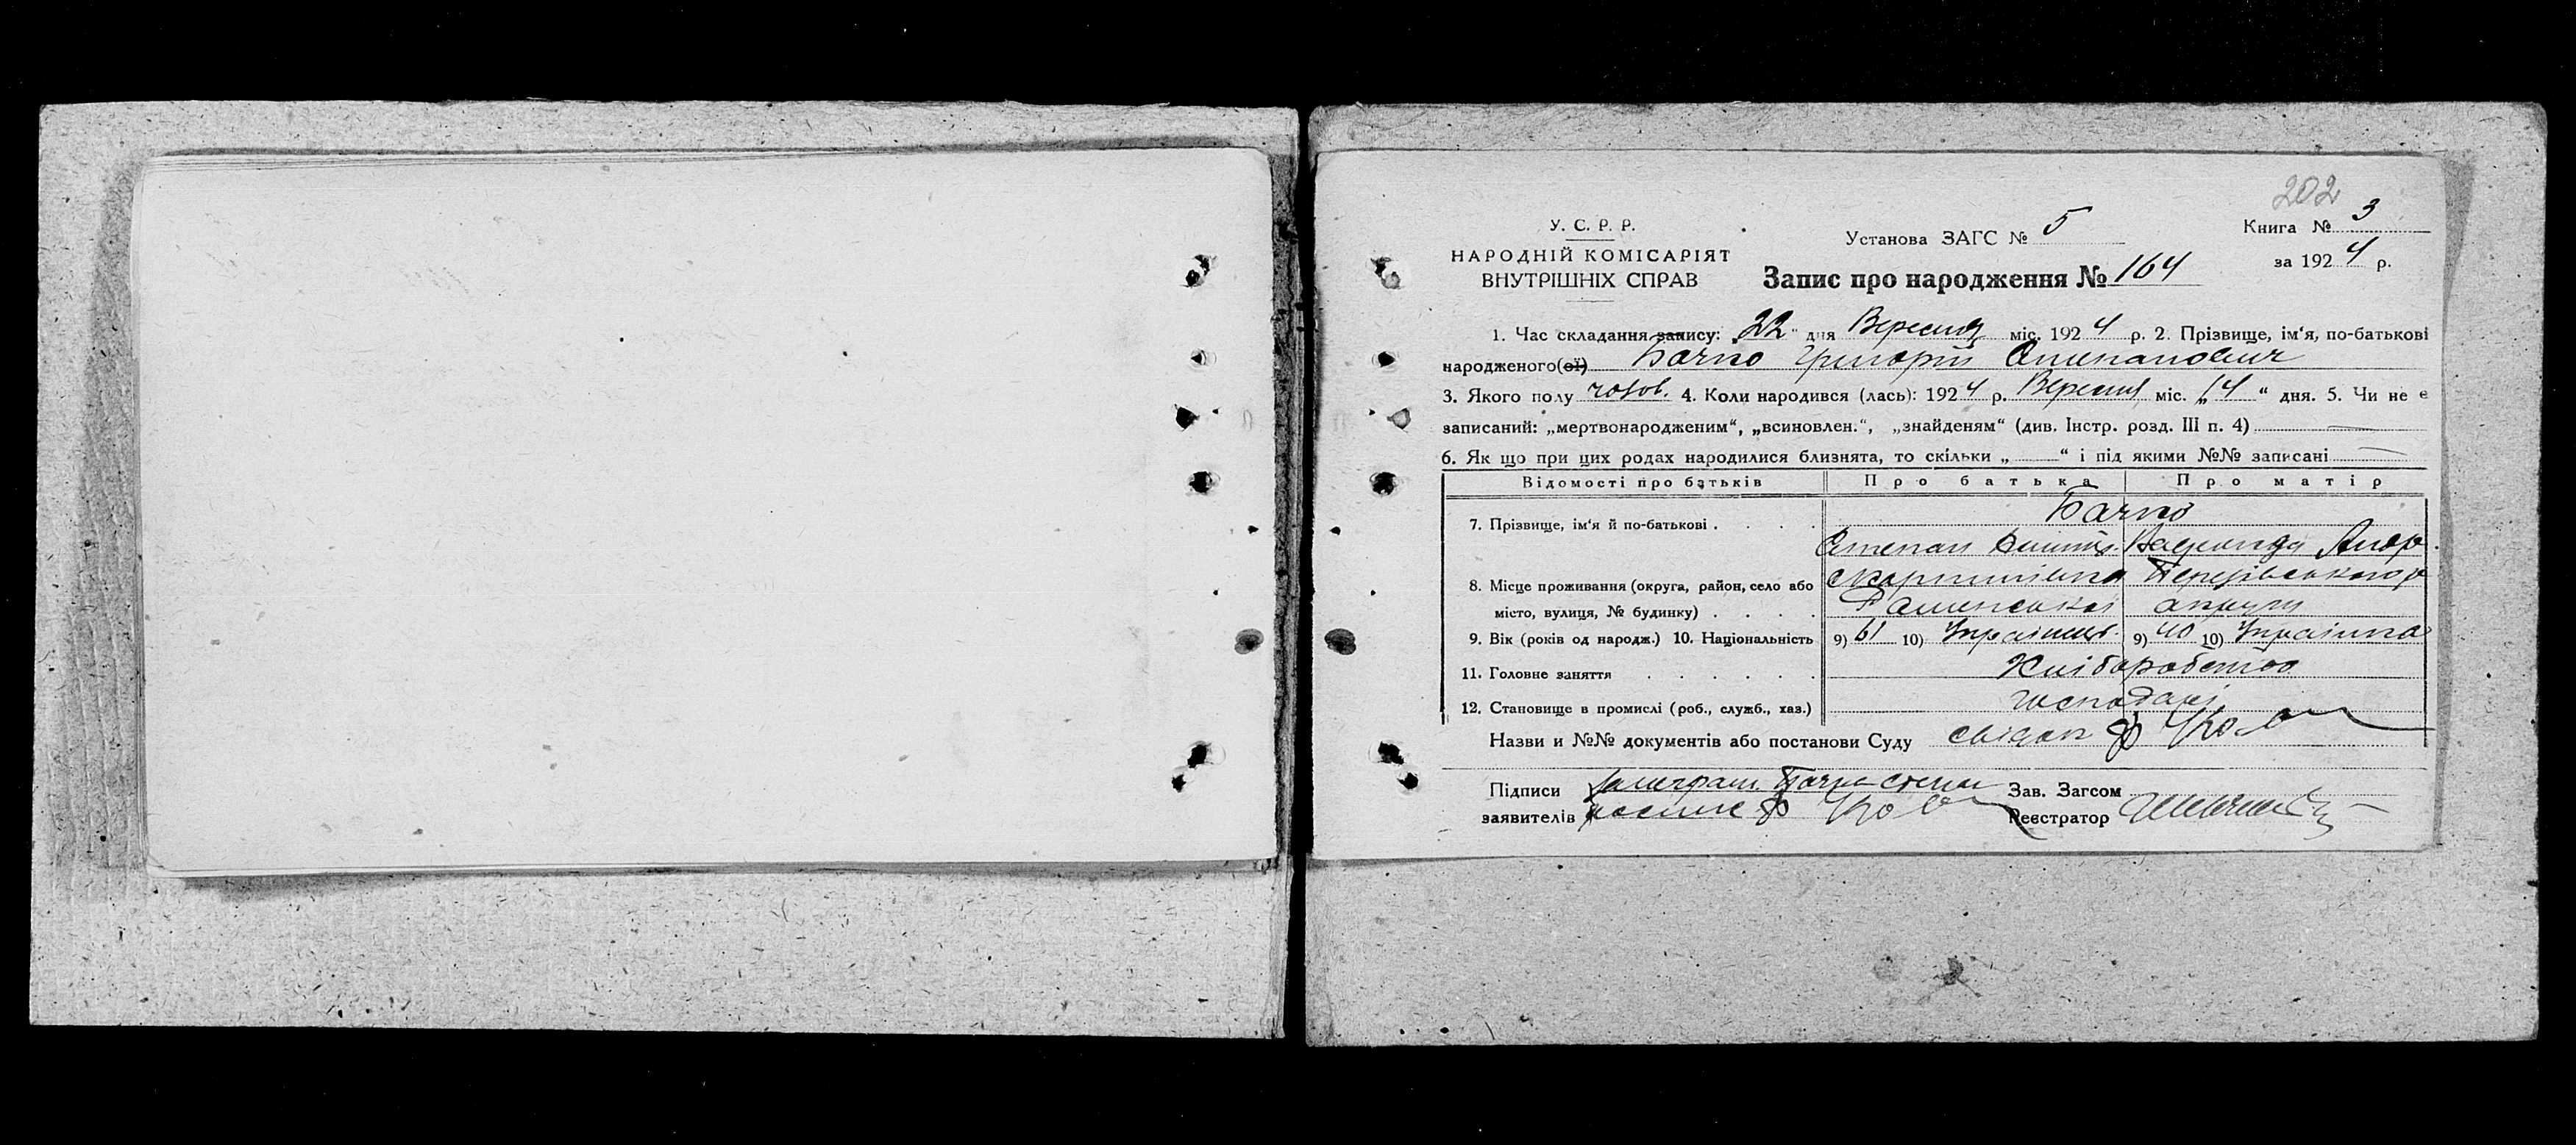 202
У. С. Р. Р.
НАРОДНІЙ КОМІСАРІЯТ
ВНУТРІШНІХ СПРАВ
Установа ЗАГС № 5
Книга № 3
за 1924 р.
Запис про народження № 164
1. Час складання запису: „22“ дня Вересня міс. 1924 р. 2. Прізвище, ім‘я, по-батькові
народженого(ої) Бачко Григорій Степанович
3. Якого полу чолов. 4. Коли народився (лась): 1924 р. Вересня міс. „14“ дня. 5. Чи не є
записаний: „мертвонародженим“, „всиновлен.“, „знайденям“ (див. Інстр. розд. III п. 4)
6. Як що при цих родах народилися близнята, то скільки „ “ і під якими №№ записані
Відомості про батьків Про батька Про матір
7. Прізвище, ім‘я й по-батькові Бачко
Степан
8. Місце проживання (округа, район, село або
місто, вулиця, № будинку) округи
9. Вік (років од народж.) 10. Національність 9) 61 10) Українець 9) 40 10) Українка
11. Головне заняття Хліборобство
12. Становище в промислі (роб., служб., хаз.) господарі
Назви и №№ документів або постанови Суду
Підписи
заявителів
Зав. Загсом
Реєстратор